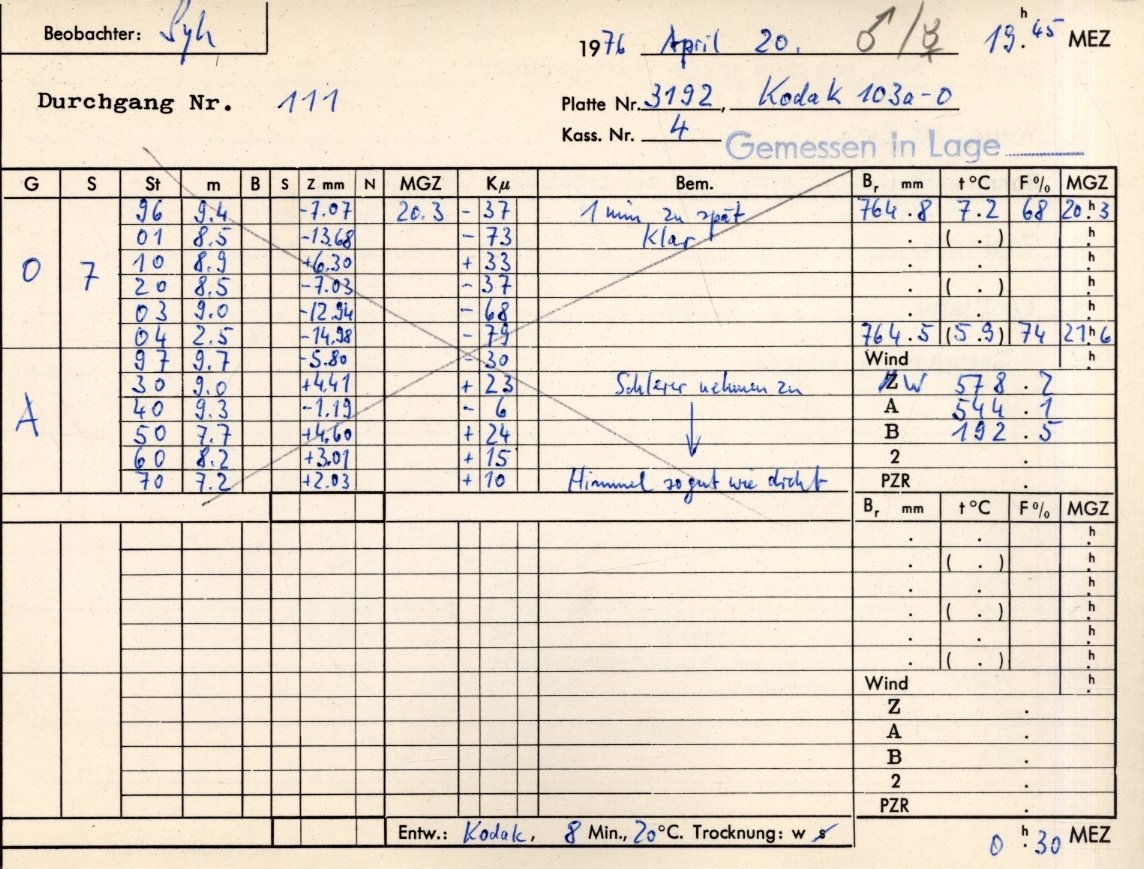 Beobachter: Syh
1976 April 20. ♂/☿ 19.h45 MEZ
Durchgang Nr. 111
Platte Nr. 3192, Kodak 103a-O
Kass. Nr. 4
Gemessen in Lage
G S St m B S Z mm N MGZ Kμ Bem. Br mm t °C F % MGZ
0 7
96 9.4 -7.07 20.3 - 37 1 min zu spät 764.8 7.2 68 20.h3
01 8.5 -13.68 - 73 Klar . ( . ) h.
10 8.9 +6.30 + 33 . . h.
20 8.5 -7.03 - 37 . ( . ) h.
03 9.0 -12.94 - 68 . . h.
04 2.5 -14.98 - 79 764.5 (5.9) 74 21.h6
A
97 9.7 -5.80 - 30 Wind h.
30 9.0 +4.41 + 23 Schleier nehmen zu Z NW 578.2
40 9.3 -1.19 - 6 A 544.1
50 7.7 +4.60 + 24 B 192.5
60 8.2 +3.01 + 15 2 .
70 7.2 +2.03 + 10 Himmel so gut wie dicht PZR .
Br mm t °C F % MGZ
. . h.
. ( . ) h.
. . h.
. ( . ) h.
. . h.
. ( . ) h.
Wind h.
Z .
A .
B .
2 .
PZR .
Entw.: Kodak, 8 Min., 20 °C. Trocknung: w s
0 h.30 MEZ